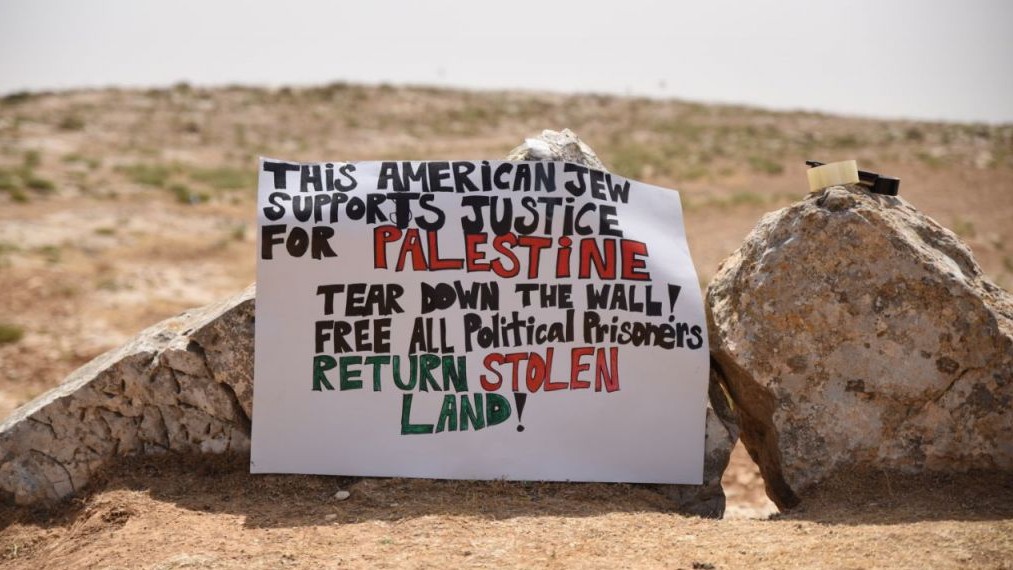 THiS AMERICAN JEW
SUPPORTS JUSTiCE
FOR PALESTiNE
TEAR DOWN THE WALL!
FREE ALL Political Prisoners
RETURN STOLEN
LAND!